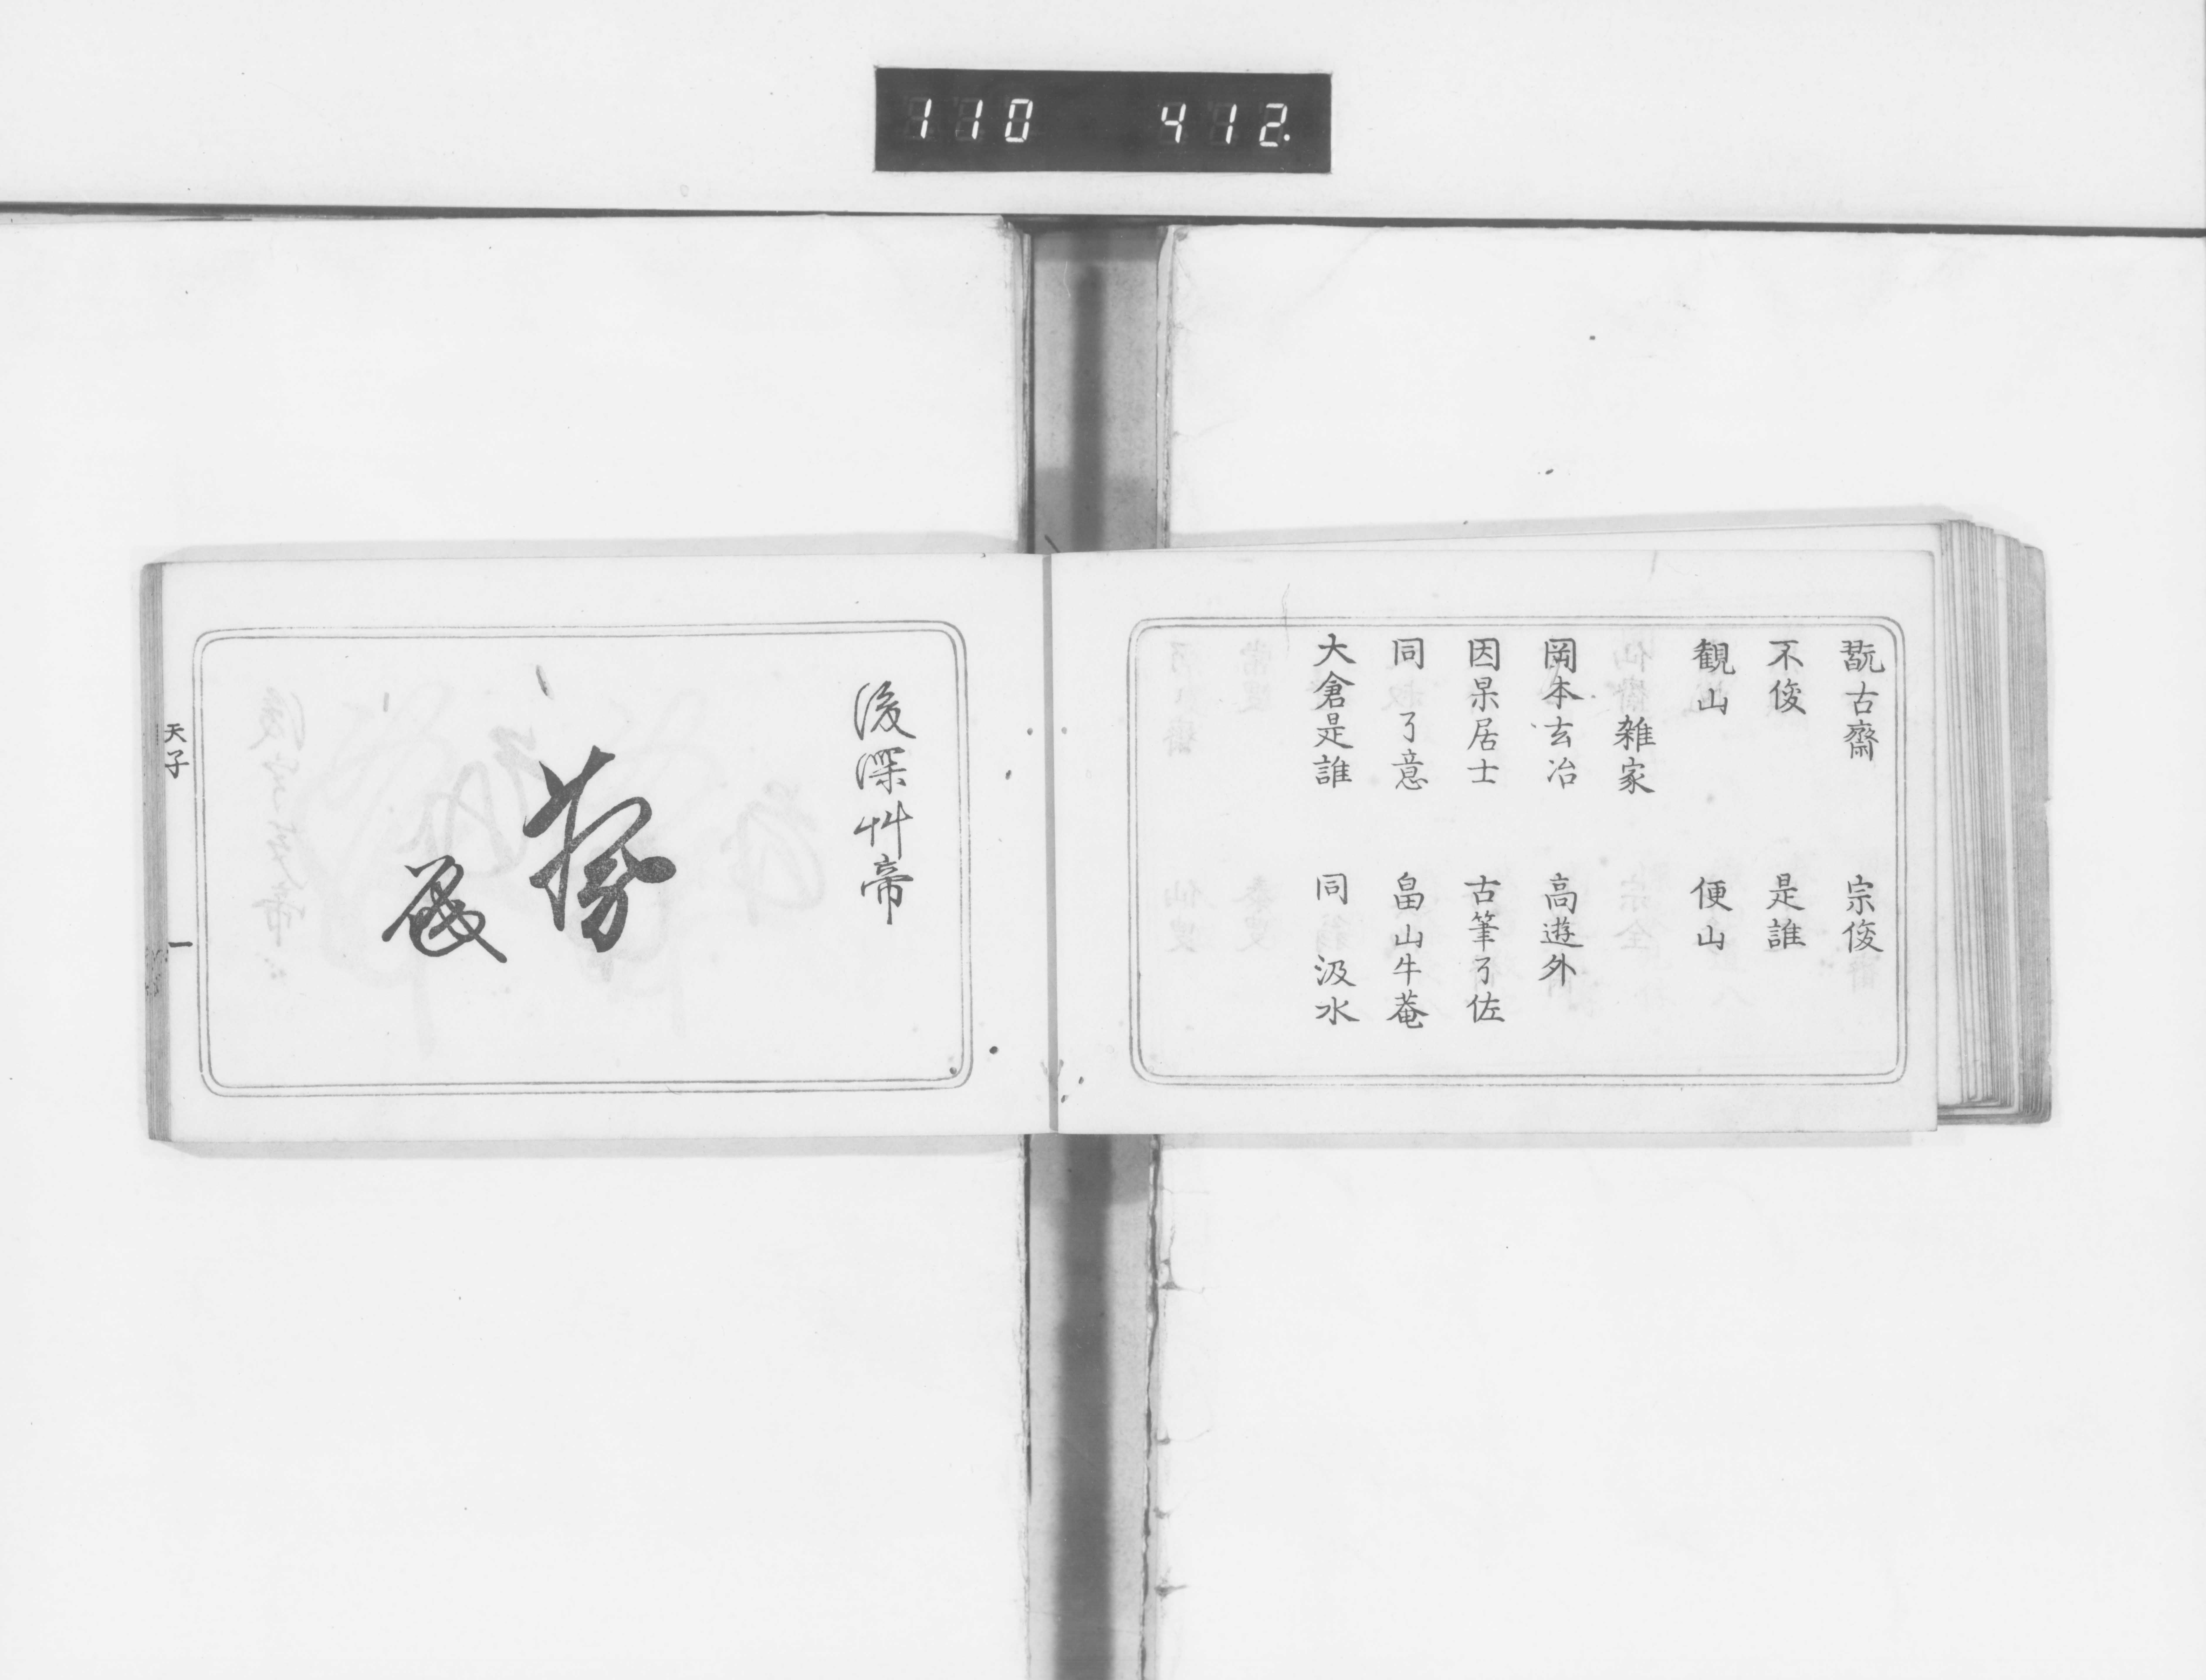 110 412.
翫古齋 宗俊
不俊 是誰
観山 便山
雑家
岡本玄冶 高遊外
因杲居士 古筆了佐
同 了意 畠山牛菴
大倉是誰 同 汲水
後深艸帝
天子 一